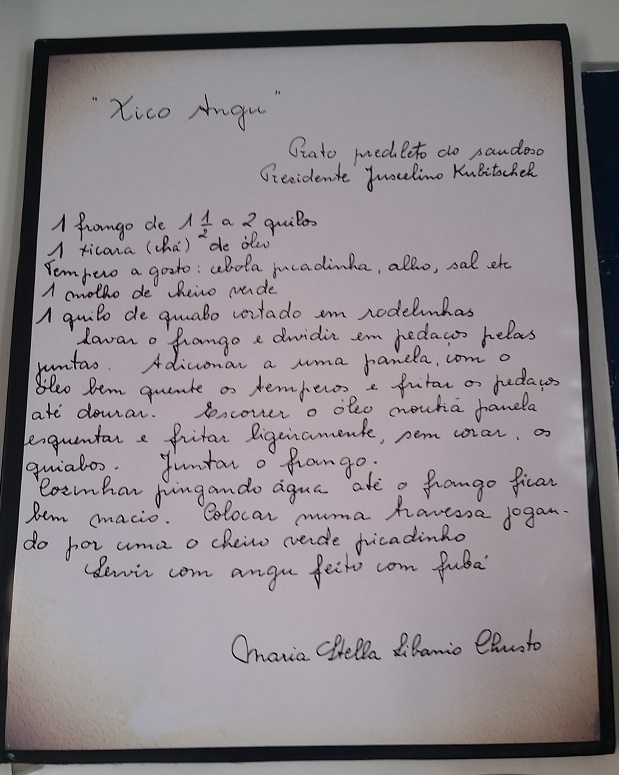 "Xico Angu"
Prato predileto do saudoso
Presidente Juscelino Kubitschek
1 frango de 1 1/2 a 2 quilos
1 xicara (chá) de óleo
Tempero a gosto: cebola picadinha, alho, sal etc
1 molho de cheiro verde
1 quilo de quiabo cortado em rodelinhas
Lavar o frango e dividir em pedaços pelas
juntas. Adicionar a uma panela, com o
óleo bem quente os temperos e fritar os pedaços
até dourar. Escorrer o óleo noutra panela
esquentar e fritar ligeiramente, sem corar, os
quiabos. Juntar o frango.
Cozinhar pingando água até o frango ficar
bem macio. Colocar numa travessa jogan-
do por cima o cheiro verde picadinho
Servir com angu feito com fubá
Maria Stella Libanio Christo